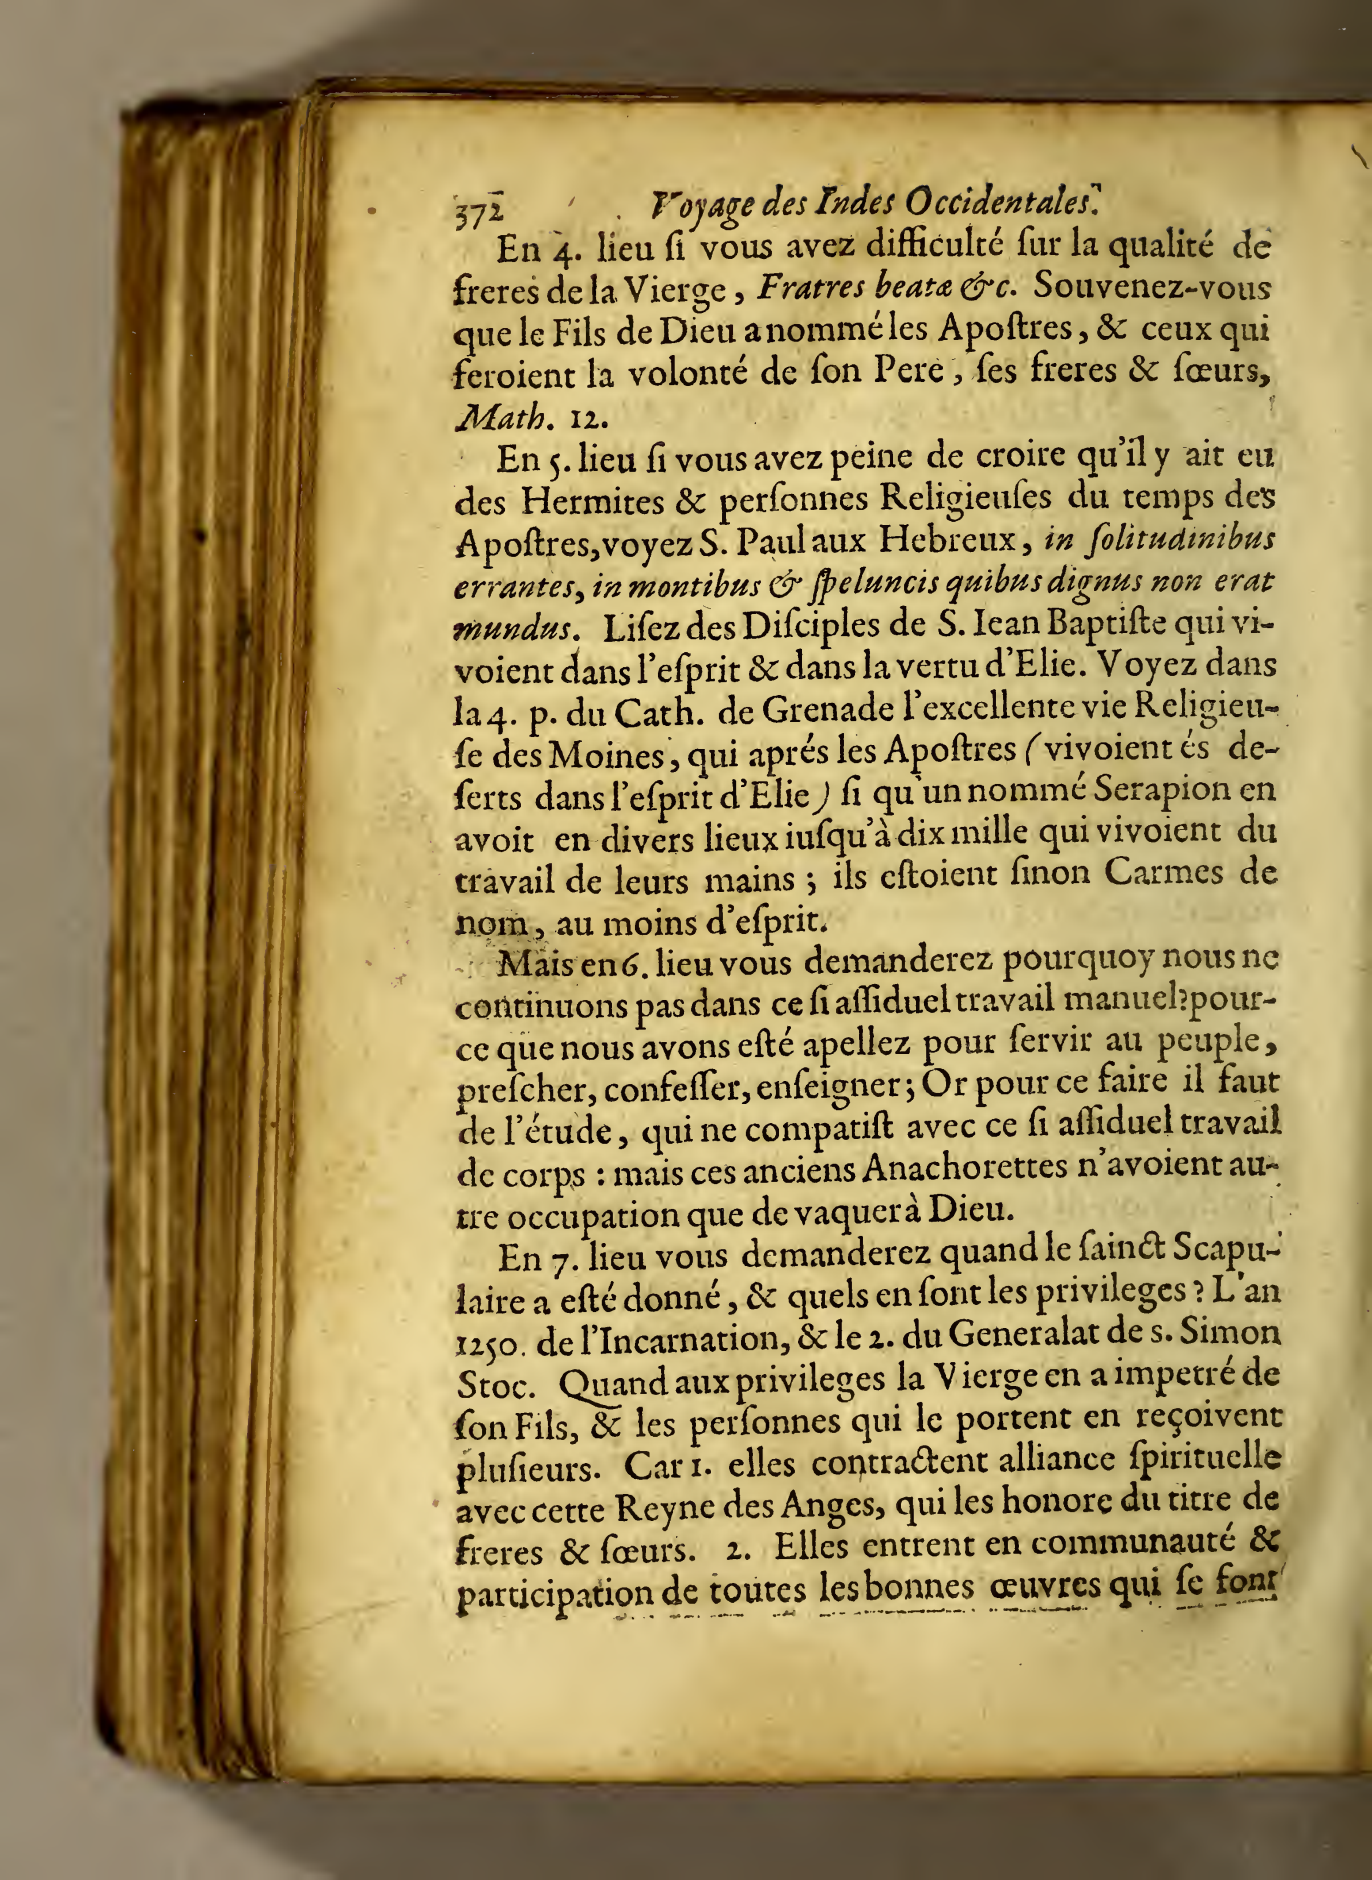 372 Voyage des Indes Occidentales.
En 4. lieu ſi vous avez difficulté ſur la qualité de
freres de la Vierge, Fratres beatæ &c. Souvenez-vous
que le Fils de Dieu a nommé les Apoſtres, & ceux qui
feroient la volonté de ſon Pere, ſes freres & ſœurs,
Math. 12.
En 5. lieu ſi vous avez peine de croire qu'il y ait eu
des Hermites & perſonnes Religieuſes du temps des
Apoſtres, voyez S. Paul aux Hebreux, in ſolitudinibus
errantes, in montibus & ſpeluncis quibus dignus non erat
mundus. Liſez des Diſciples de S. Iean Baptiſte qui vi-
voient dans l'eſprit & dans la vertu d'Elie. Voyez dans
la 4. p. du Cath. de Grenade l'excellente vie Religieu-
ſe des Moines, qui aprés les Apoſtres (vivoient és de-
ſerts dans l'eſprit d'Elie) ſi qu'un nommé Serapion en
avoit en divers lieux iuſqu'à dix mille qui vivoient du
travail de leurs mains ; ils eſtoient ſinon Carmes de
nom, au moins d'eſprit.
Mais en 6. lieu vous demanderez pourquoy nous ne
continuons pas dans ce ſi aſſiduel travail manuel? pour-
ce que nous avons eſté apellez pour ſervir au peuple,
preſcher, confeſſer, enſeigner ; Or pour ce faire il faut
de l'étude, qui ne compatiſt avec ce ſi aſſiduel travail
de corps : mais ces anciens Anachorettes n'avoient au-
tre occupation que de vaquer à Dieu.
En 7. lieu vous demanderez quand le ſainct Scapu-
laire a eſté donné, & quels en ſont les privileges ? L'an
1250. de l'Incarnation, & le 2. du Generalat de s. Simon
Stoc. Quand aux privileges la Vierge en a impetré de
ſon Fils, & les perſonnes qui le portent en reçoivent
pluſieurs. Car 1. elles contractent alliance ſpirituelle
avec cette Reyne des Anges, qui les honore du titre de
freres & ſœurs. 2. Elles entrent en communauté &
participation de toutes les bonnes œuvres qui ſe font